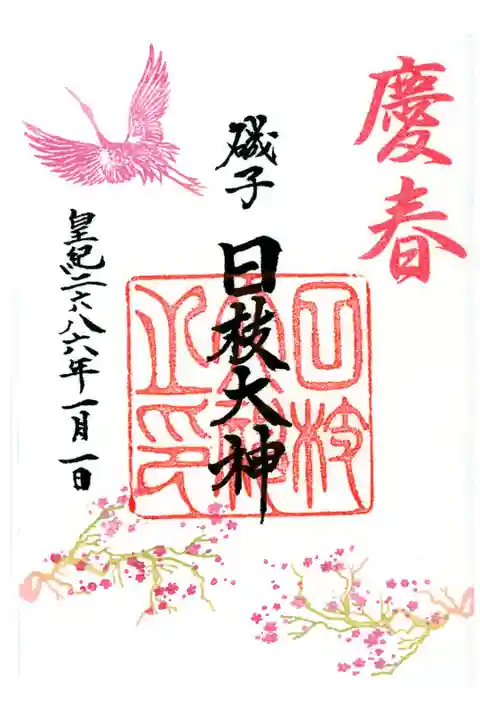 慶春
磯子
日枝大神
日枝
大神
之印
皇紀二六八六年一月一日